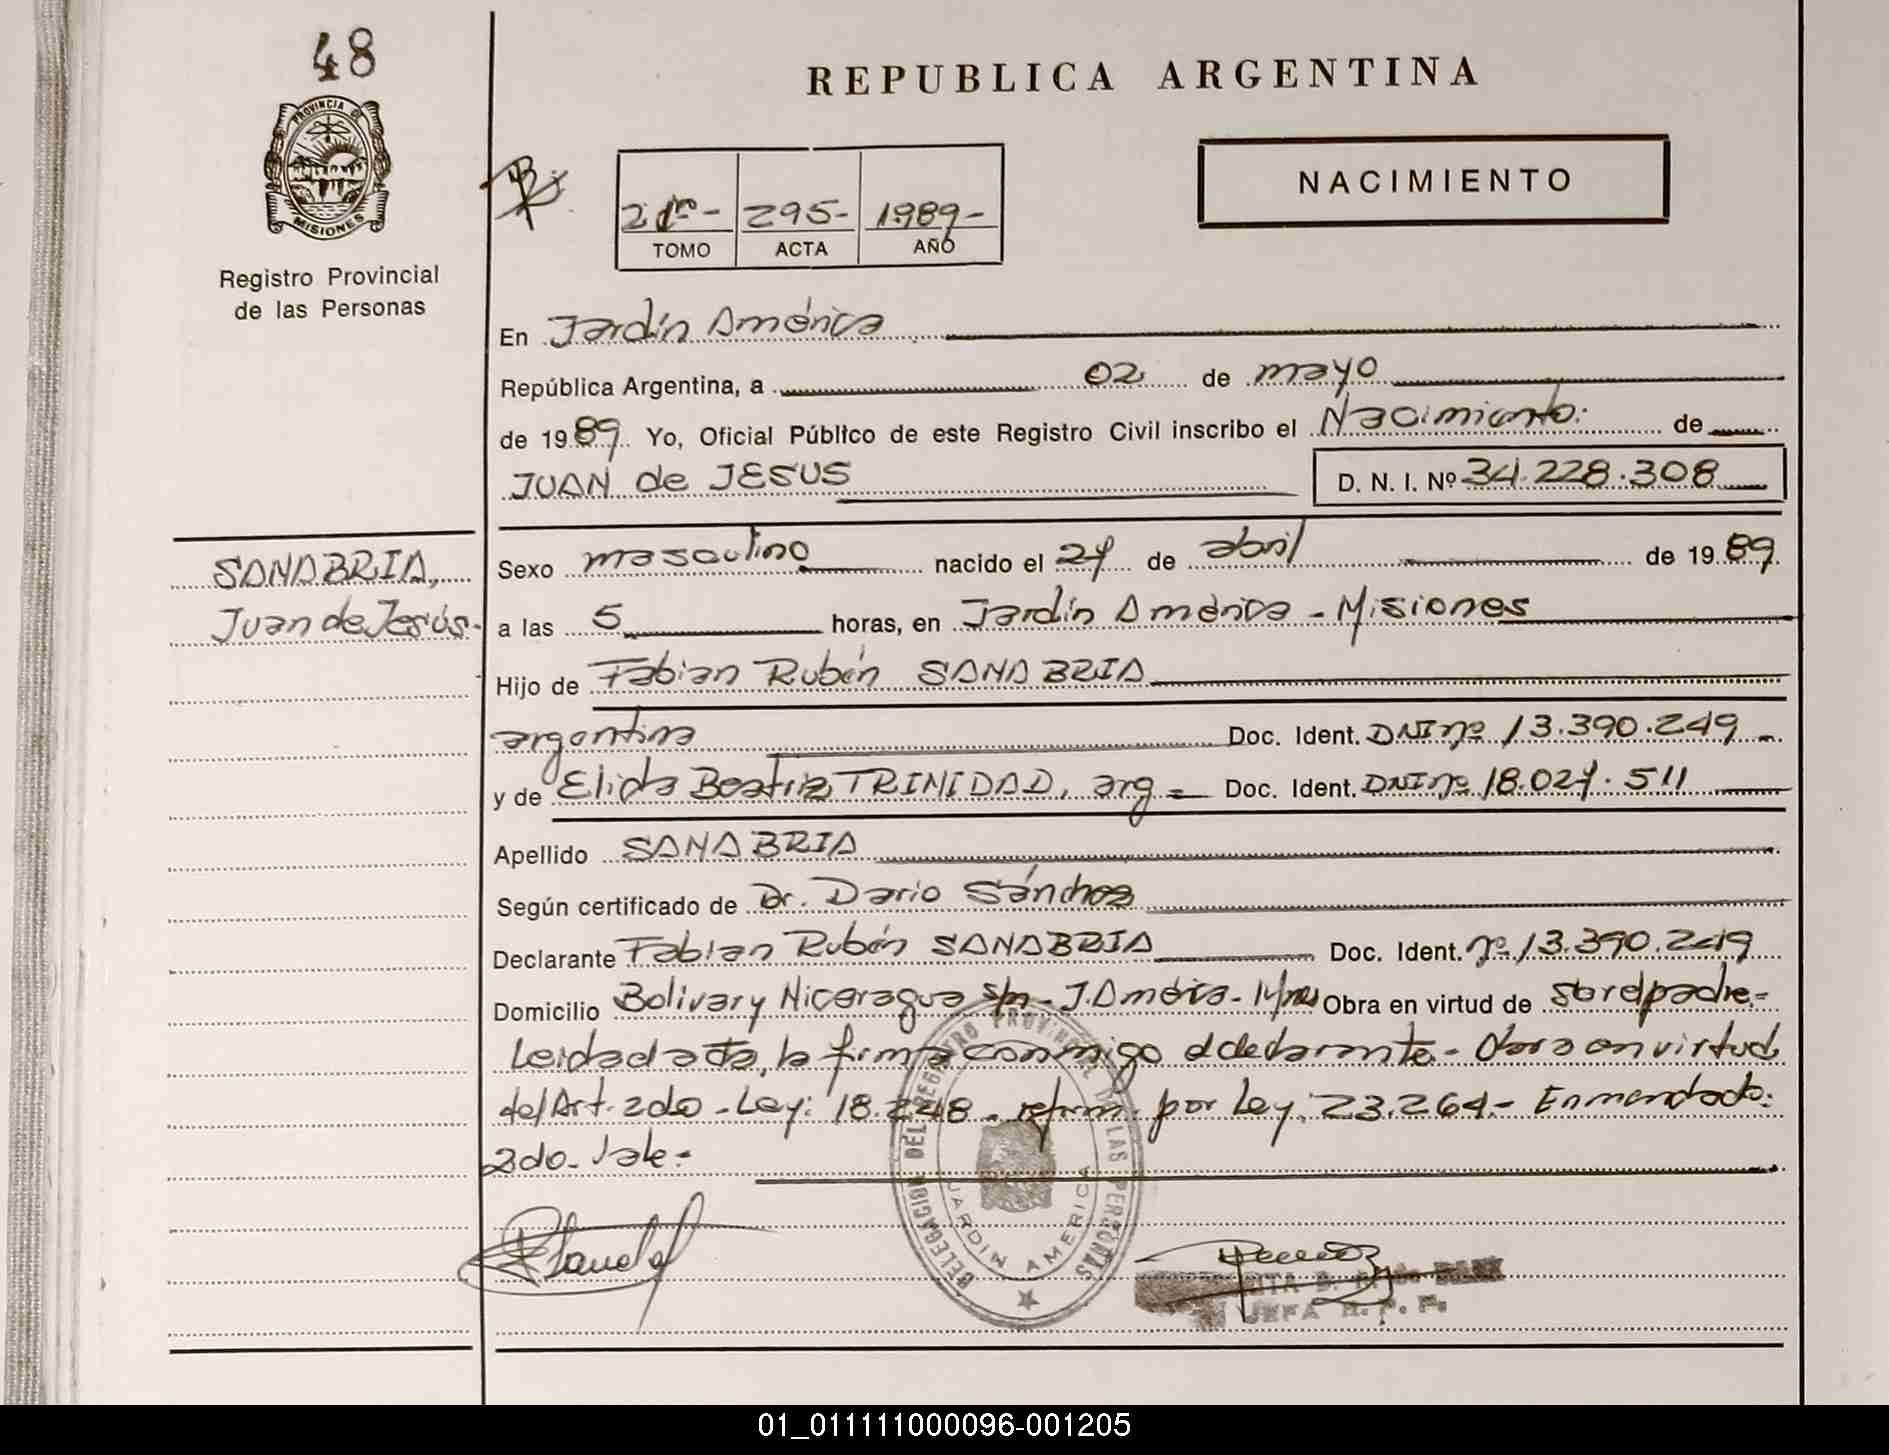 48
PROVINCIA DE
MISIONES
Registro Provincial
de las Personas
REPUBLICA ARGENTINA
NACIMIENTO
2do- 295- 1989-
TOMO ACTA AÑO
En Jardín América
República Argentina, a 02 de mayo
de 1989. Yo, Oficial Público de este Registro Civil inscribo el Nacimiento. de
JUAN de JESUS D. N. I. Nº 34.228.308
SANABRIA,
Juan de Jesús-
Sexo masculino nacido el 27 de abril de 1989
a las 5 horas, en Jardín América - Misiones
Hijo de Fabian Rubén SANABRIA
argentina Doc. Ident. DNI nº 13.390.249
y de Elida Beatriz TRINIDAD, arg Doc. Ident. DNI nº 18.027.511
Apellido SANABRIA
Según certificado de Dr. Dario Sánchez
Declarante Fabian Rubén SANABRIA Doc. Ident. nº 13.390.249
Domicilio Bolivar y Nicaragua s/n - J. América - Mnes Obra en virtud de ser el padre.-
Leida el acta, la firma conmigo el declarante.- Obra en virtud
del Art. 2do - Ley: 18.248 - reform. por Ley: 23.264.- Enmendado:
2do. Vale.-
DELEGACION DEL REGISTRO PROVINCIAL DE LAS PERSONAS
JARDIN AMERICA
JEFA R. P. P.
01_011111000096-001205